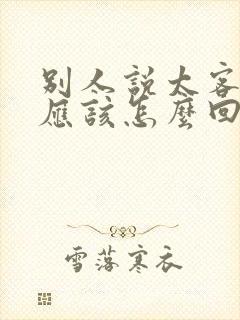 别人説太客
應該怎麽回
雪落寒衣